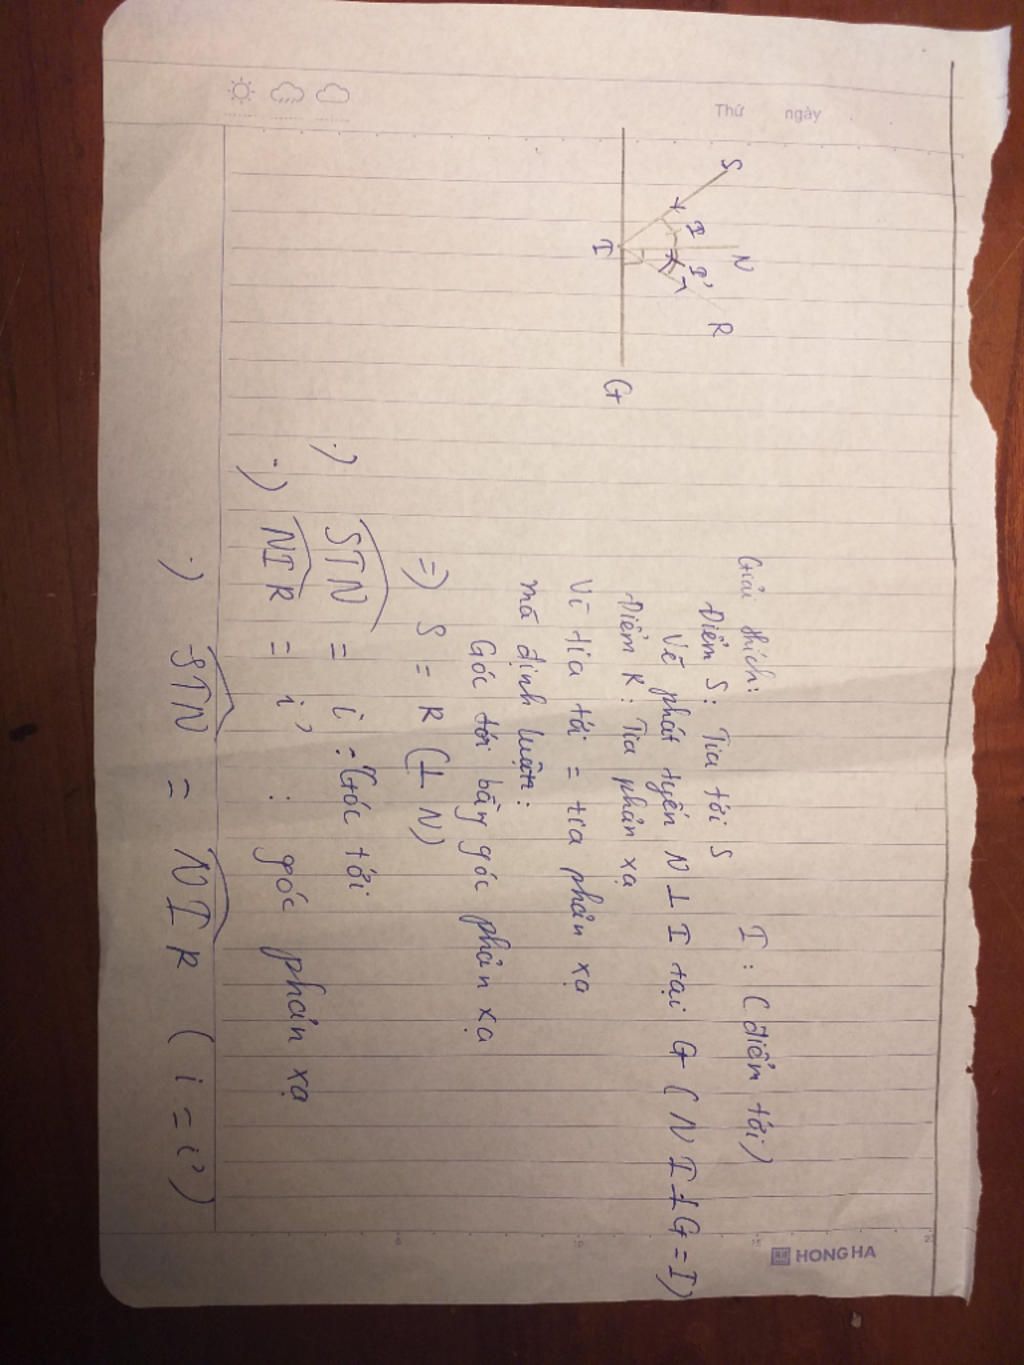 Thứ ngày
S
N
R
I
I'
I
G
Giải thích: I : (điểm tới)
Điểm S: Tia tới S
Vẽ phát tyến N ⊥ I tại G (N I ⊥ G = I)
Điểm R: Tia phản xạ
Vì tia tới = tia phản xạ
mà định luật:
Góc tới bằng góc phản xạ
=> S = R (⊥ N)
·) SIN = i : Góc tới
·) NIR = i' : góc phản xạ
·) SIN = NIR (i = i')
5
10
15
20
HONG HA